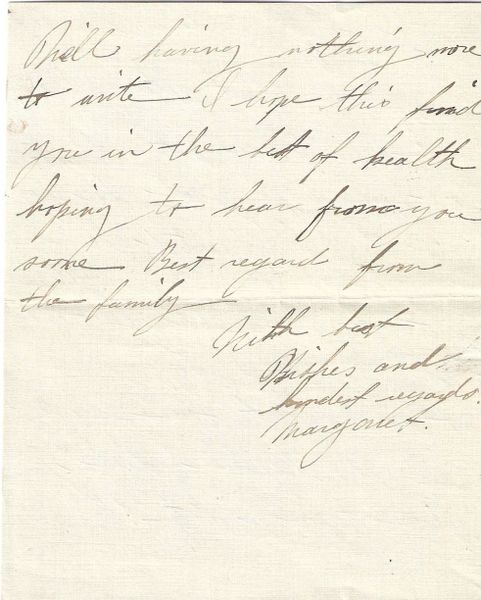 Well having nothing more
to write I hope this find
you in the best of health
hoping to hear from you
some Best regard from
the family
With best
Wishes and
kindest regards.
Margaret.